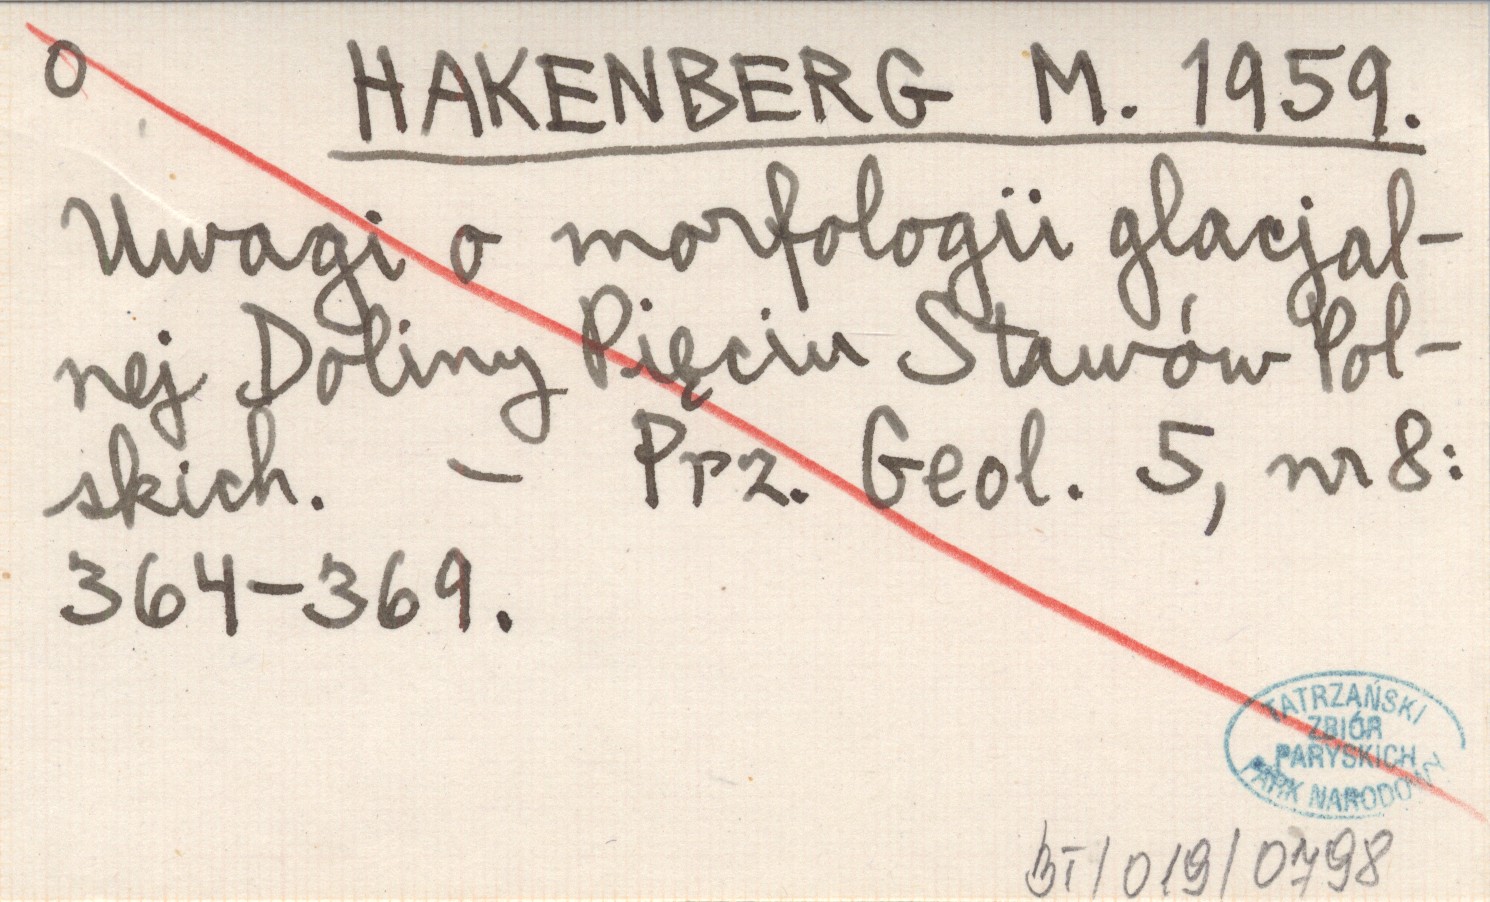 O HAKENBERG M. 1959.
Uwagi o morfologii glacjal-
nej Doliny Pięciu Stawów Pol-
skich. – Prz. Geol. 5, nr 8:
364–369.
TATRZAŃSKI
ZBIÓR
PARYSKICH
PARK NARODOWY
BT/019/0798